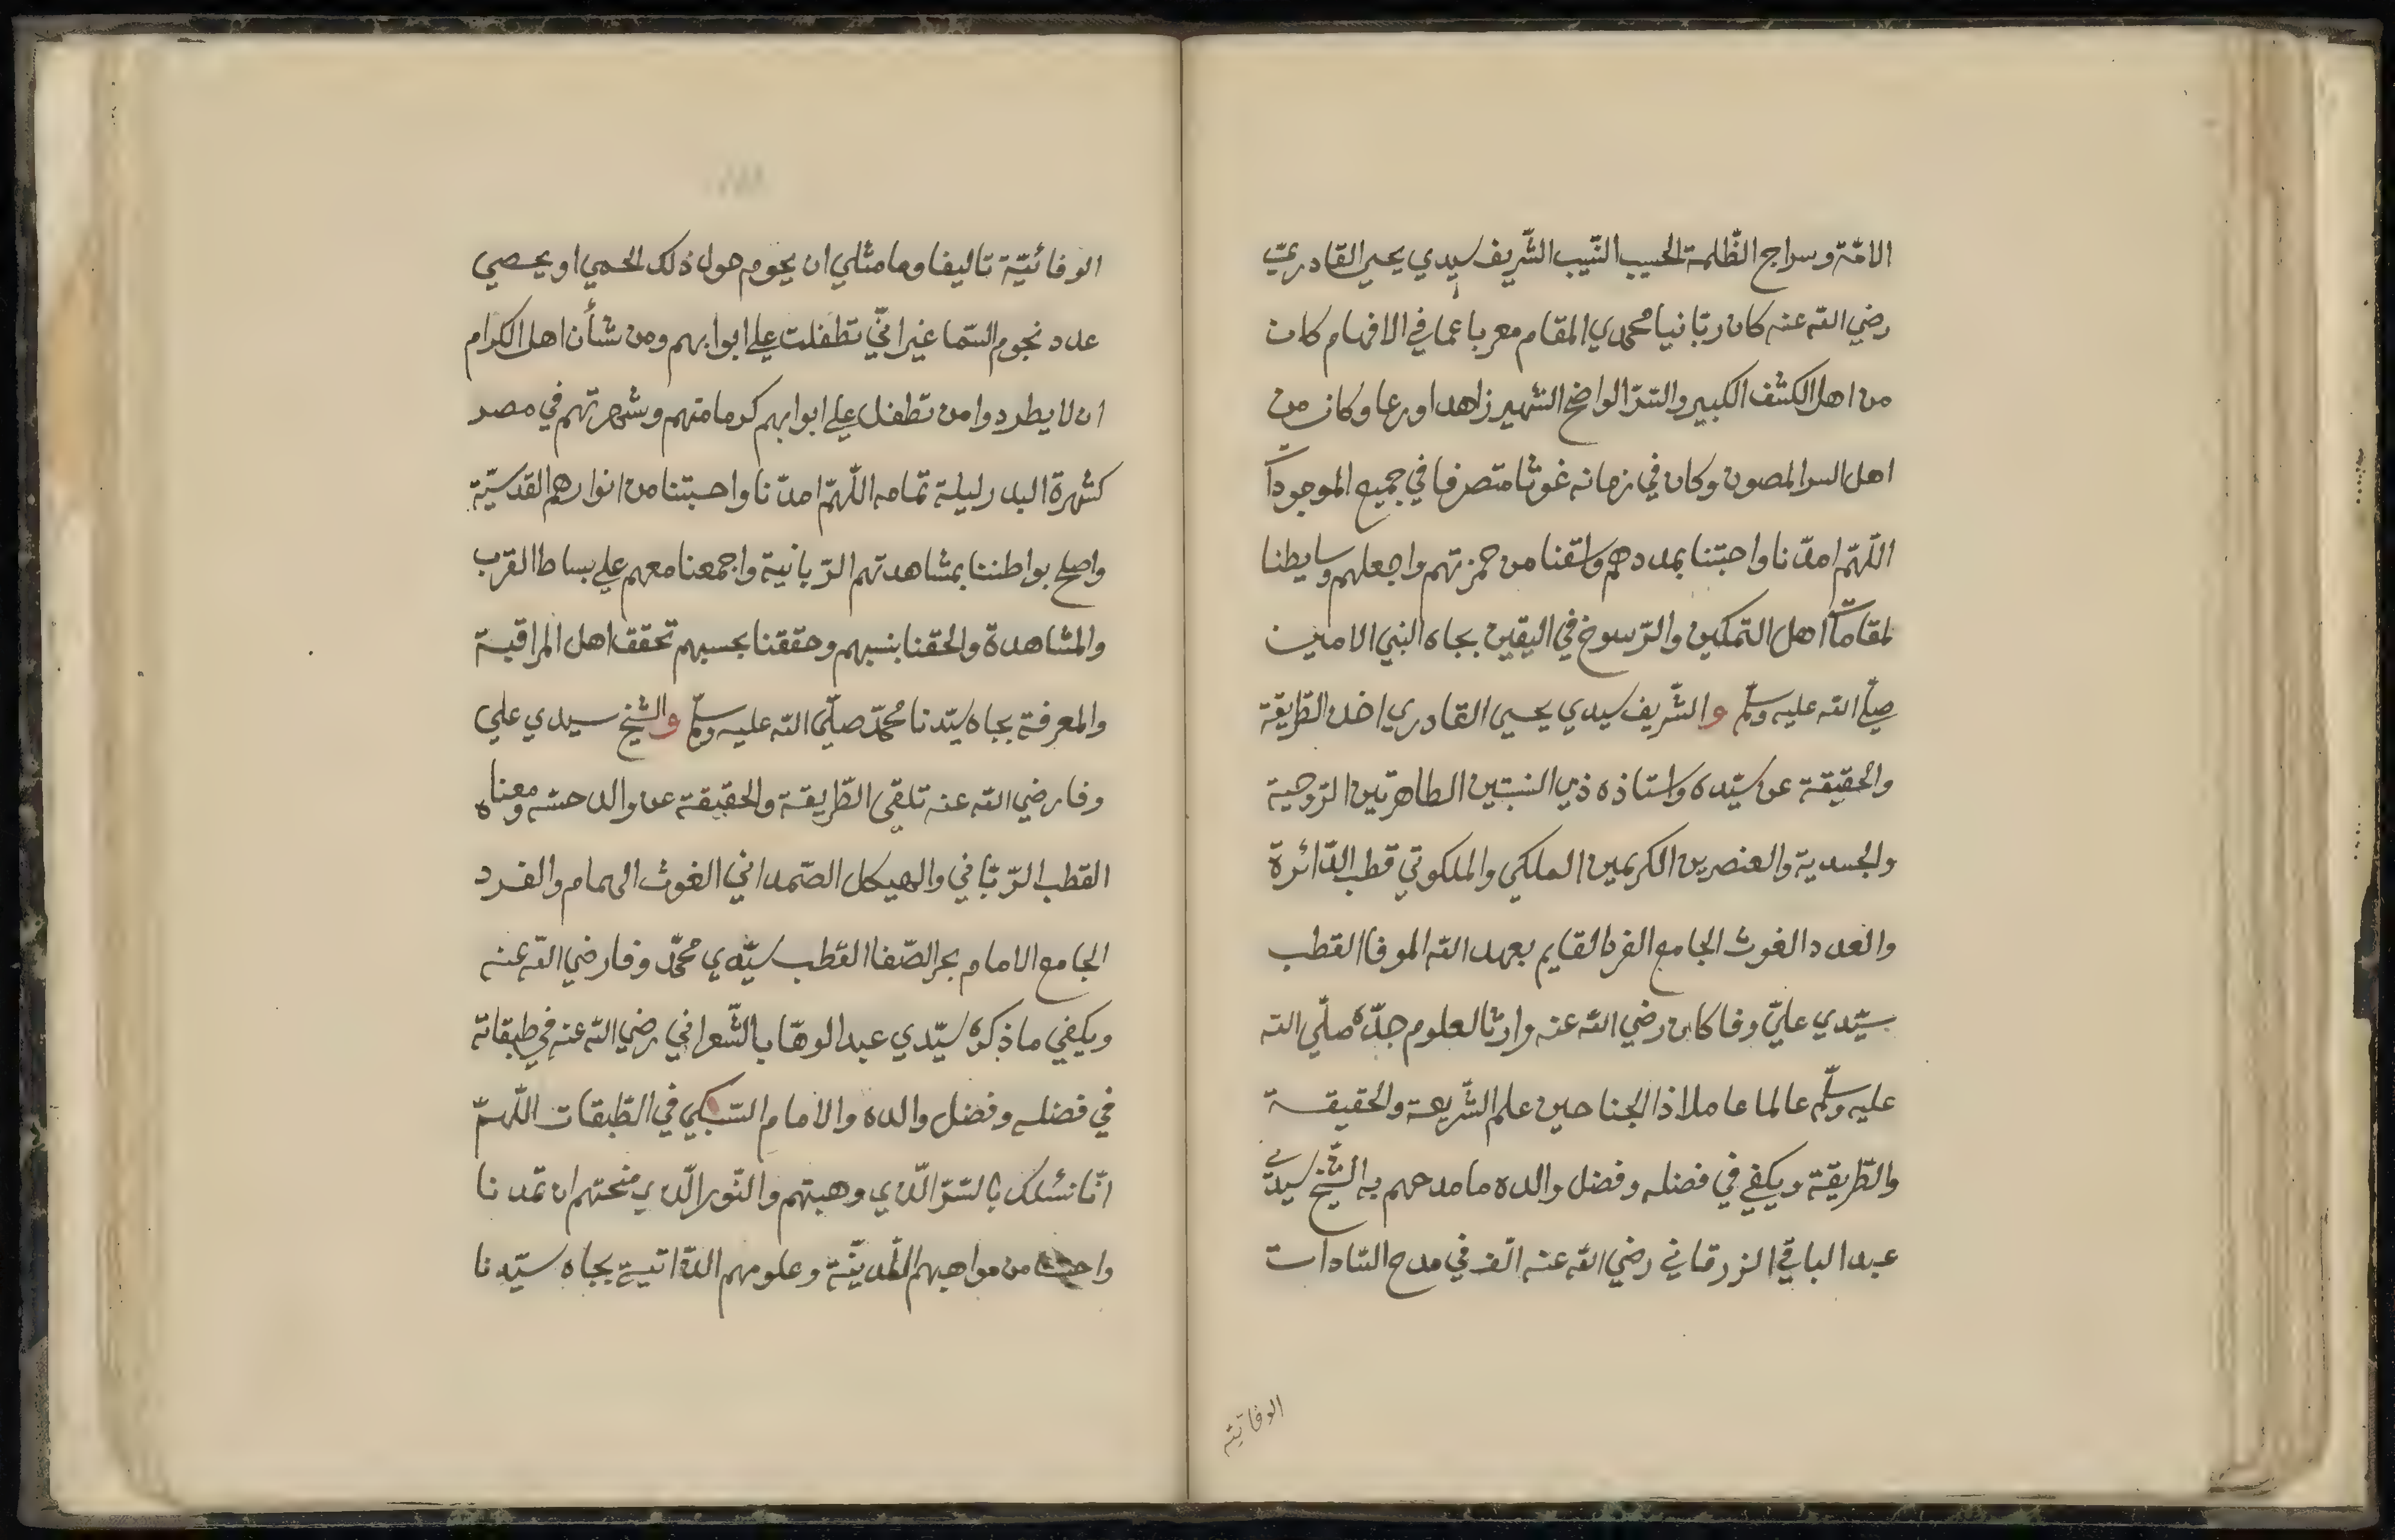 الامّة وسراج الظّلمة الحسيب النّسيب الشّريف سيدي يحيى القادريّ
رضي الله عنه كان ربّانيا محمدي المقام معربا عما في الافهام كان
من اهل الكشف الكبير والسّرّ الواضح الشهير زاهدا ورعا وكان من
اهل السر المصون وكان في زمانه غوثا متصرفا في جميع الموجودات
اللّهمّ امدّنا واحبّتنا بمددهم واسقنا من خمرتهم واجعلهم وسايطنا
لمقامات اهل التمكين والرّسوخ في اليقين بجاه النبي الامين
صلّى الله عليه وسلّم والشّريف سيدي يحيى القادري اخذ الطّريقة
والحقيقة عن سيّده واستاذه ذي النسبتين الطاهرتين الرّوحية
والجسدية والعنصرين الكريمين الملكي والملكوتي قطب الدّائرة
والعدد الغوث الجامع الفرد القايم بعهد الله الموفا القطب
سيّدي عليّ وفا كان رضي الله عنه وارثا لعلوم جدّه صلّى الله
عليه وسلّم عالما عاملا ذا الجناحين علم الشّريعة والحقيقة
والطّريقة ويكفي في فضله وفضل والده ما مدحهم به الشّيخ سيدي
عبد الباقي الزرقاني رضي الله عنه الّف في مدح السّادات
الوفائية
الوفائيّة تاليفا وما مثلي ان يحوم حول ذلك الحمي او يحصي
عدد نجوم السّما غير انّي تطفلت على ابوابهم ومن شأن اهل الكرام
ان لا يطردوا من تطفل على ابوابهم كرما منهم وشهرتهم في مصر
كشهرة البدر ليلة تمامه اللّهمّ امدّنا واحبتنا من انوارهم القدسيّة
واصلح بواطننا بمشاهدتهم الرّبانية واجمعنا معهم على بساط القرب
والمشاهدة والحقنا بنسبهم وحققنا بحسبهم تحقق اهل المراقبة
والمعرفة بجاه سيّدنا محمّد صلّى الله عليه وسلّم والشيخ سيدي علي
وفا رضي الله عنه تلقى الطّريقة والحقيقة عن والد حسّه ومعناه
القطب الرّبّاني والهيكل الصّمداني الغوث الهمام والفرد
الجامع الامام بحر الصّفا القطب سيّدي محمّد وفا رضي الله عنه
ويكفي ما ذكره سيّدي عبد الوهّاب الشّعراني رضي الله عنه في طبقاته
في فضله وفضل والده والامام السّبكي في الطّبقات اللّهمّ
انّا نسئلك بالسّرّ الّذي وهبتهم والنّور الّذي منحتهم ان تمدّنا
واحبتنا من مواهبهم اللّدنّيّة وعلومهم الذّاتية بجاه سيّدنا